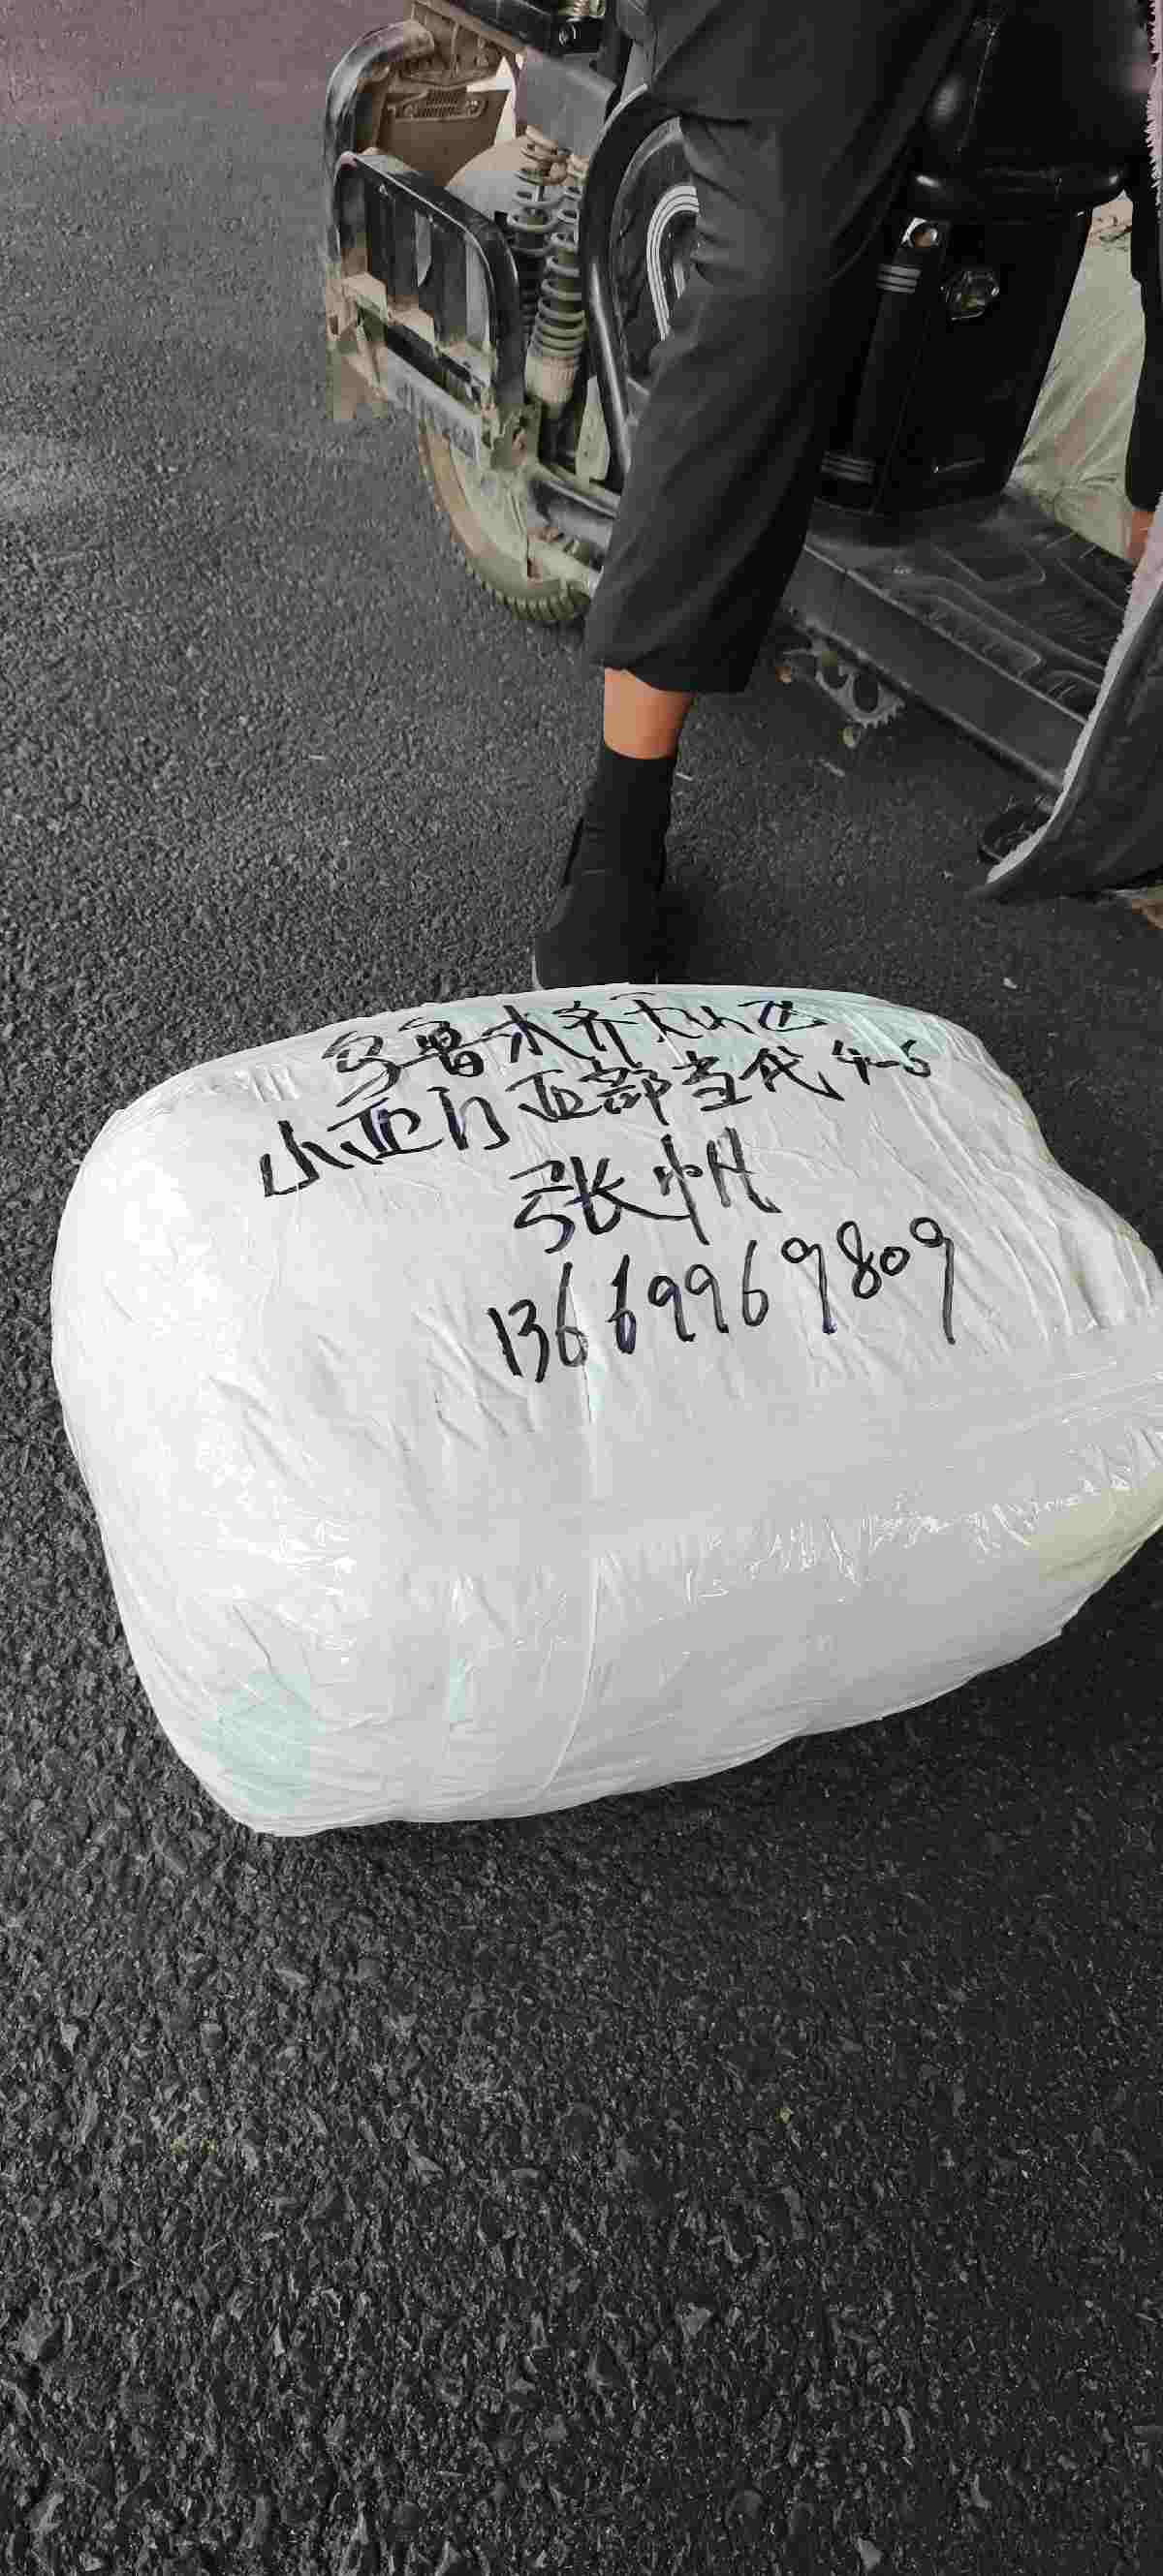 乌鲁木齐天山区
小西门西部当代4-6
张帆
13669969809